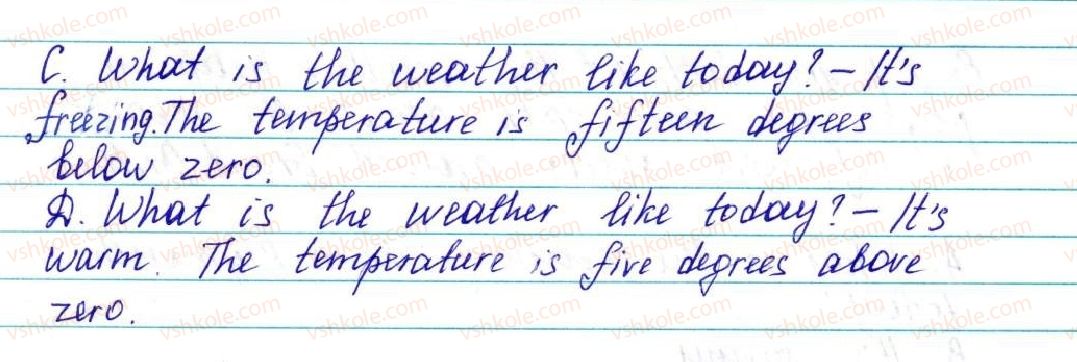 C. What is the weather like today? – It's
freezing. The temperature is fifteen degrees
below zero.
D. What is the weather like today? – It's
warm. The temperature is five degrees above
zero.